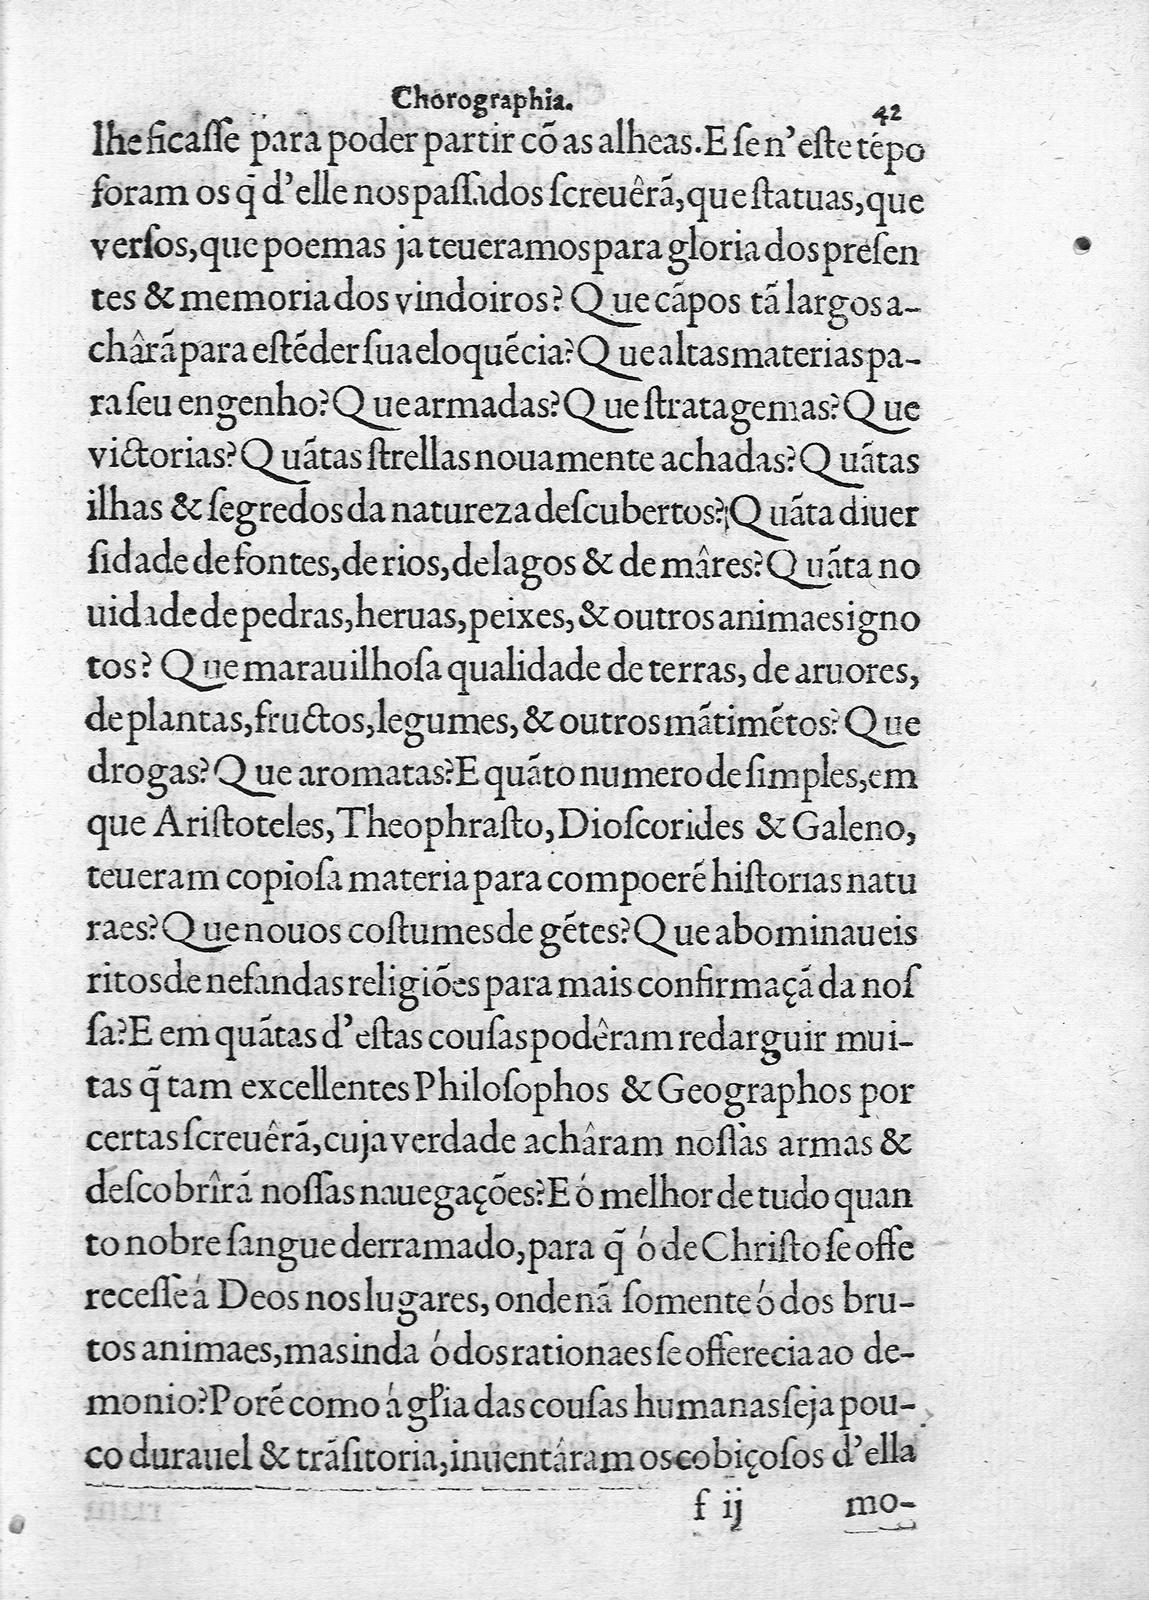 Chorographia.
42
lhe ficaſſe para poder partir cõ as alheas. E ſe n'eſte tẽpo
foram os q̃ d'elle nos paſſados ſcreuêrã, que ſtatuas, que
verſos, que poemas ja teueramos para gloria dos preſen
tes & memoria dos vindoiros? Que cãpos tã largos a-
chârã para eſtẽder ſua eloquẽcia? Que altas materias pa-
ra ſeu engenho? Que armadas? Que ſtratagemas? Que
victorias? Quãtas ſtrellas nouamente achadas? Quãtas
ilhas & ſegredos da natureza deſcubertos? Quãta diuer
ſidade de fontes, de rios, de lagos & de mâres? Quãta no
uidade de pedras, heruas, peixes, & outros animaes igno
tos? Que marauilhoſa qualidade de terras, de aruores,
de plantas, fructos, legumes, & outros mãtimẽtos? Que
drogas? Que aromatas? E quãto numero de ſimples, em
que Ariſtoteles, Theophraſto, Dioſcorides & Galeno,
teueram copioſa materia para compoerẽ hiſtorias natu
raes? Que nouos coſtumes de gẽtes? Que abominaueis
ritos de nefandas religiões para mais confirmaçã da noſ
ſa? E em quãtas d'eſtas couſas podêram redarguir mui-
tas q̃ tam excellentes Philoſophos & Geographos por
certas ſcreuêrã, cuja verdade achâram noſſas armas &
deſcobrîrã noſſas nauegações? E ó melhor de tudo quan
to nobre ſangue derramado, para q̃ ó de Chriſto ſe offe
receſſe á Deos nos lugares, onde nã ſomente ó dos bru-
tos animaes, mas inda ó dos rationaes ſe offerecia ao de-
monio? Porẽ como á gl̃ia das couſas humanas ſeja pou-
co durauel & trãſitoria, inuentâram os cobiçoſos d'ella
f ij
mo-